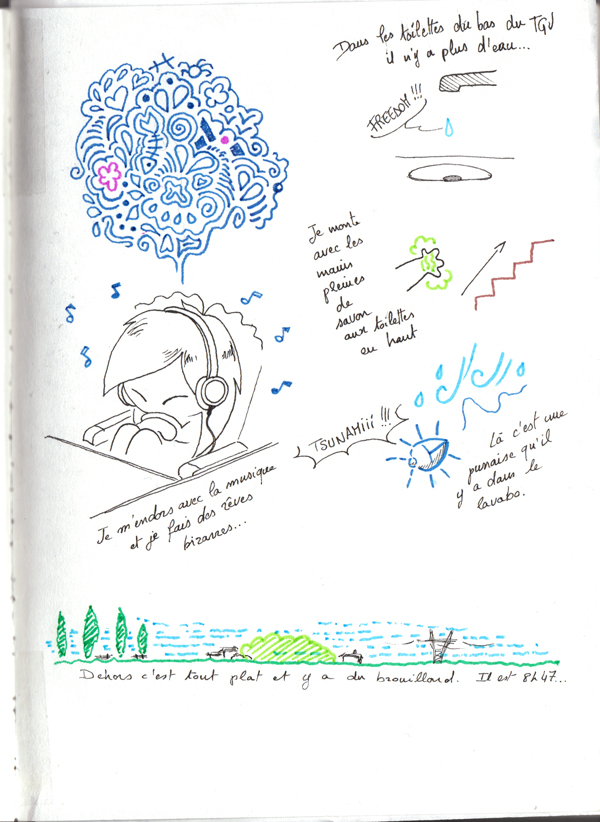 Dans les toilettes du bas du TGV
il n'y a plus d'eau...
FREEDOM !!!
Je monte
avec les
mains
pleines
de
savon
aux toilettes
en haut
TSUNAMiii !!!
Là c'est une
punaise qu'il
y a dans le
lavabo.
Je m'endors avec la musique
et je fais des rêves
bizarres...
Dehors c'est tout plat et y a du brouillard. Il est 8h47...